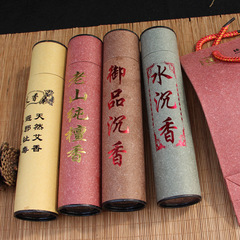 天然艾香
老山纯檀香
御品沉香
水沉香